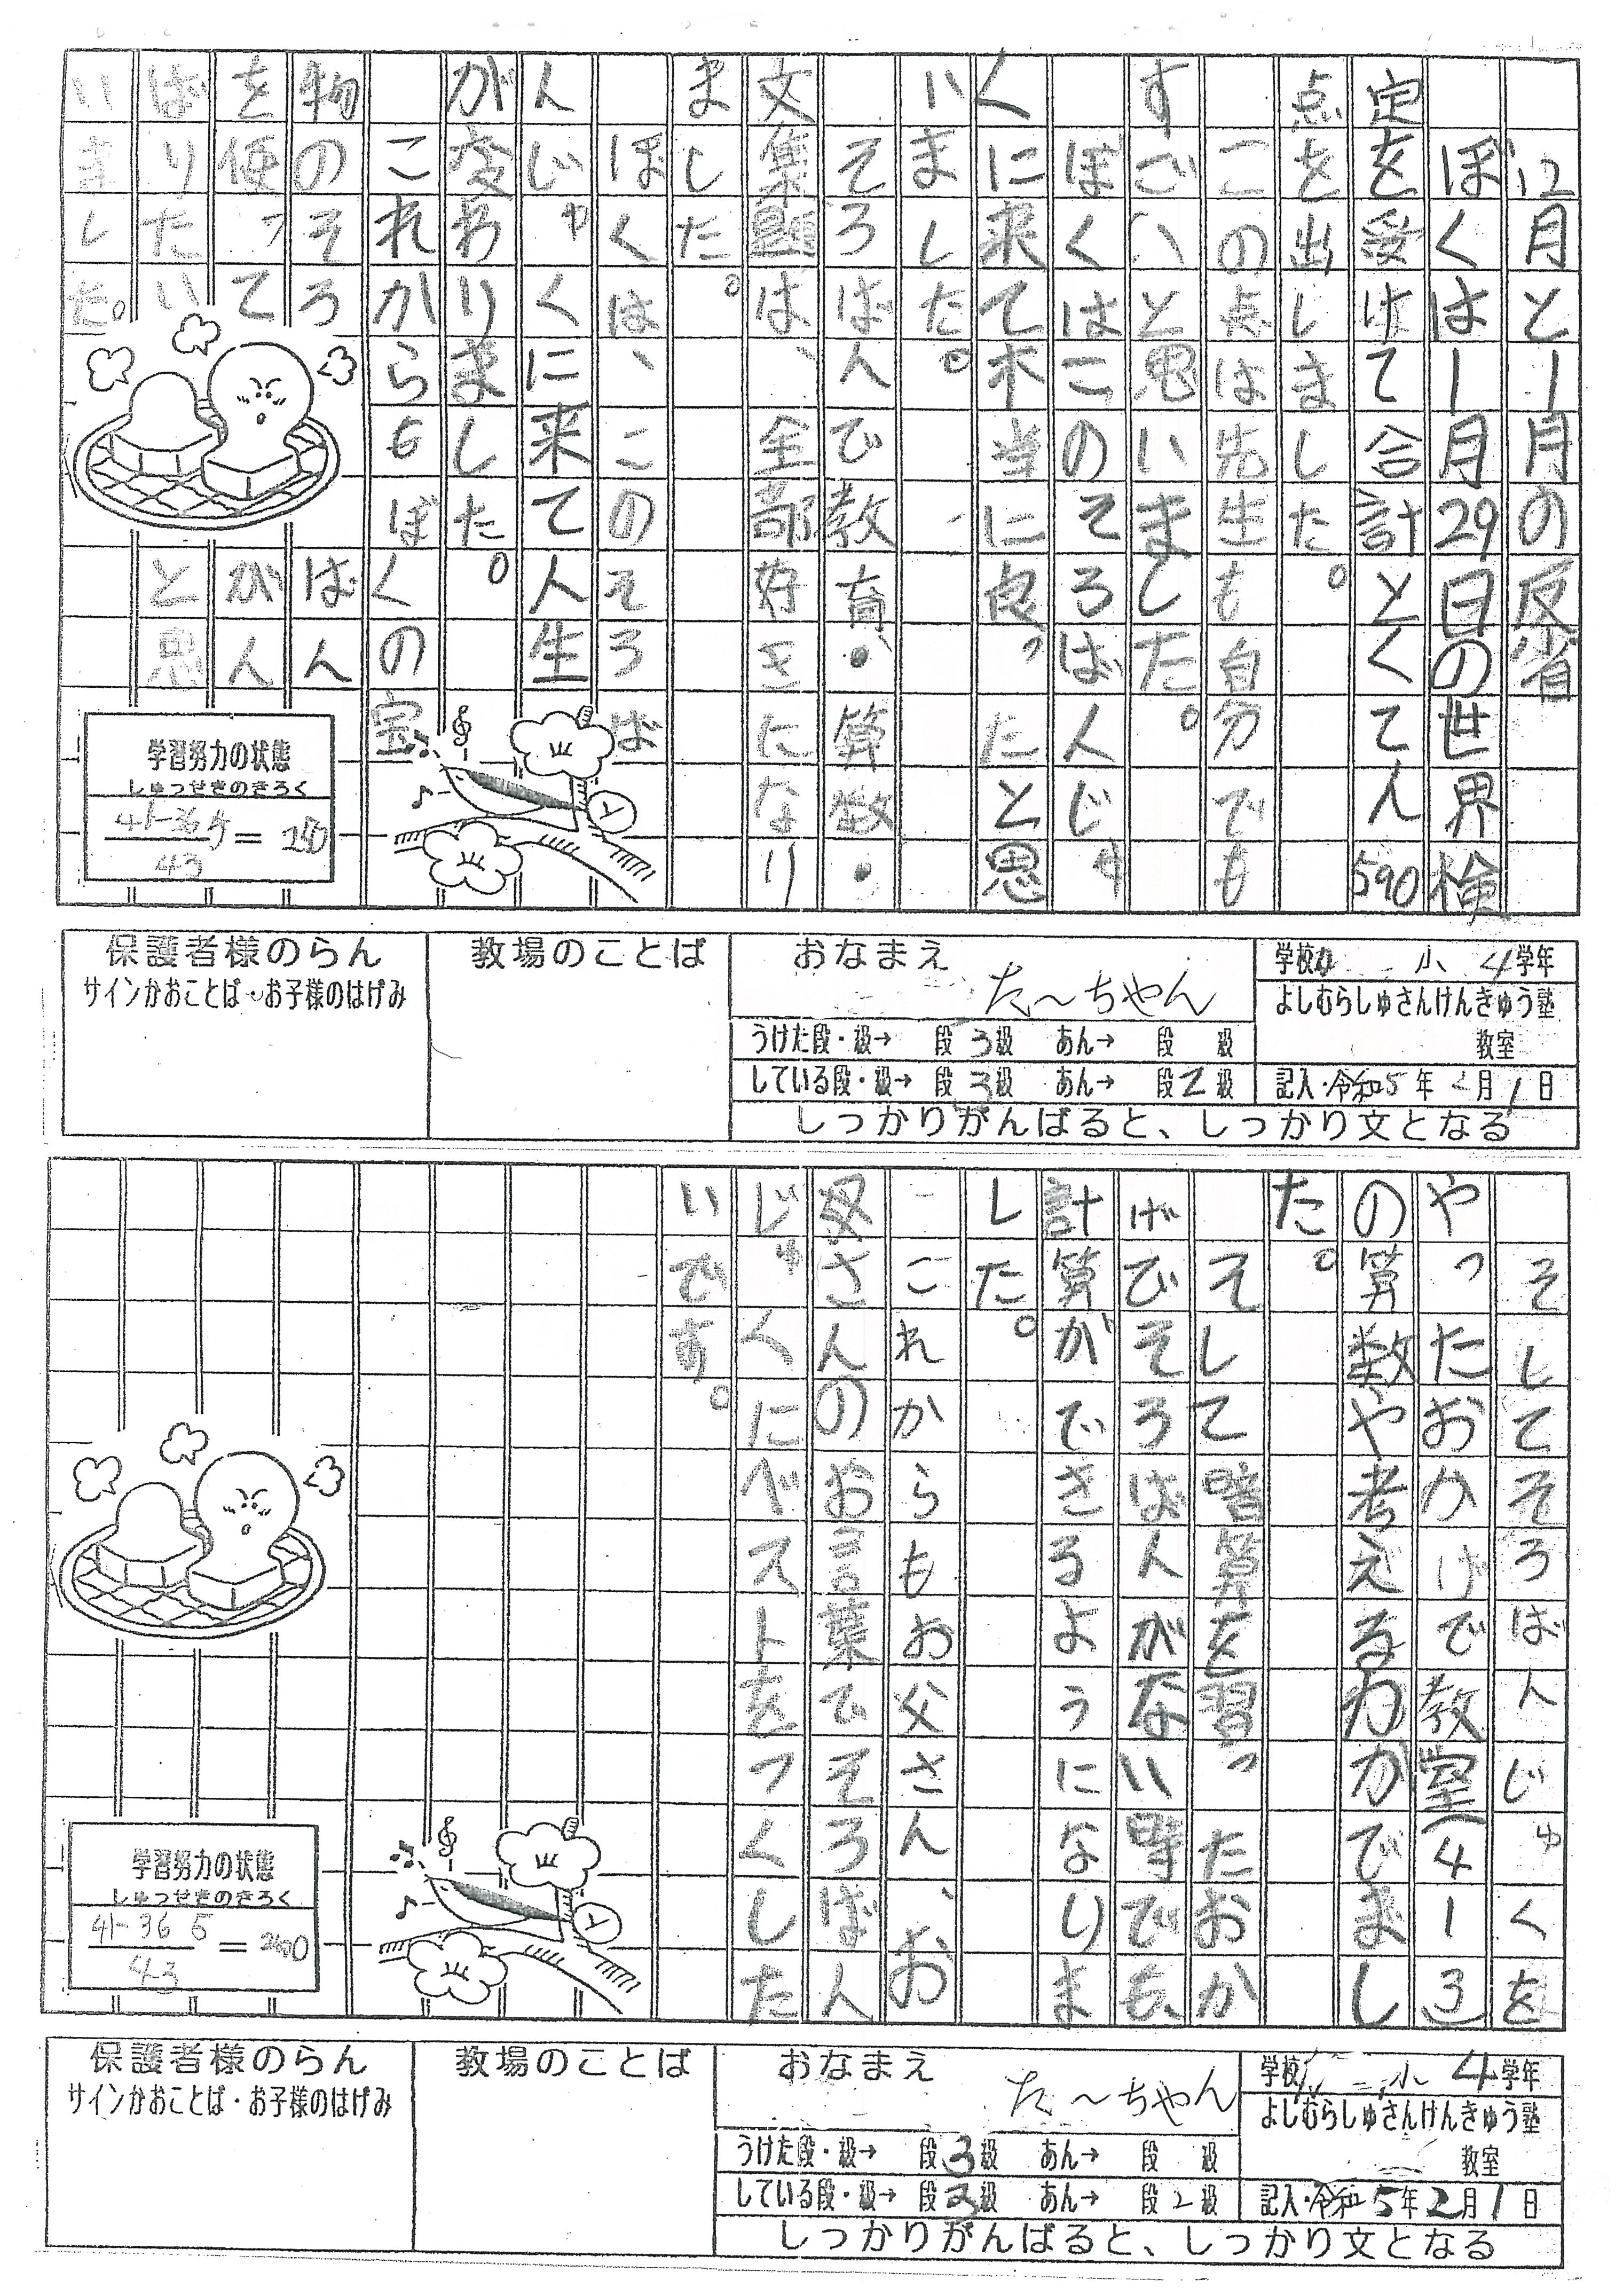 12月と1月の反省
ぼくは1月29日の世界検
定を受けて合計とくてん590
点を出しました。
この点は先生も自分でも
すごいと思いました。
ぼくはこのそろばんじゅ
くに来て本当に良ったと思
いました。
そろばんで教育・算数・
文集題は、全部好きになり
ました。
ぼくは、このそろば
んじゃくに来て人生
が変わりました。
これからもぼくの宝
物のそろばん
を使ってがん
ばりたいと思
いました。
学習努力の状態
しゅっせきのきろく
41-36 5
43
= 250
保護者様のらん
サインかおことば・お子様のはげみ
教場のことば
おなまえ
た〜ちやん
うけた段・級→ 段 3級 あん→ 段 級
している段・級→ 段 3級 あん→ 段2級
しっかりがんばると、しっかり文となる
学校 小 4学年
よしむらしゅさんけんきゅう塾
教室
記入・令和5年2月1日
そしてそろばんじゅくを
やったおかげで教室(4ー3)
の算数や考える力がでまし
た。
そして暗算を習ったおか
げでそろばんがない時でも、
計算ができるようになりま
した。
これからもお父さん、お
母さんのお言葉でそろばん
じゅくにベストをつくした
いです。
学習努力の状態
しゅっせきのきろく
41-36 5
43
= 250
保護者様のらん
サインかおことば・お子様のはげみ
教場のことば
おなまえ
た〜ちやん
うけた段・級→ 段3級 あん→ 段 級
している段・級→ 段3級 あん→ 段2級
しっかりがんばると、しっかり文となる
学校 小 4学年
よしむらしゅさんけんきゅう塾
教室
記入・令和5年2月1日